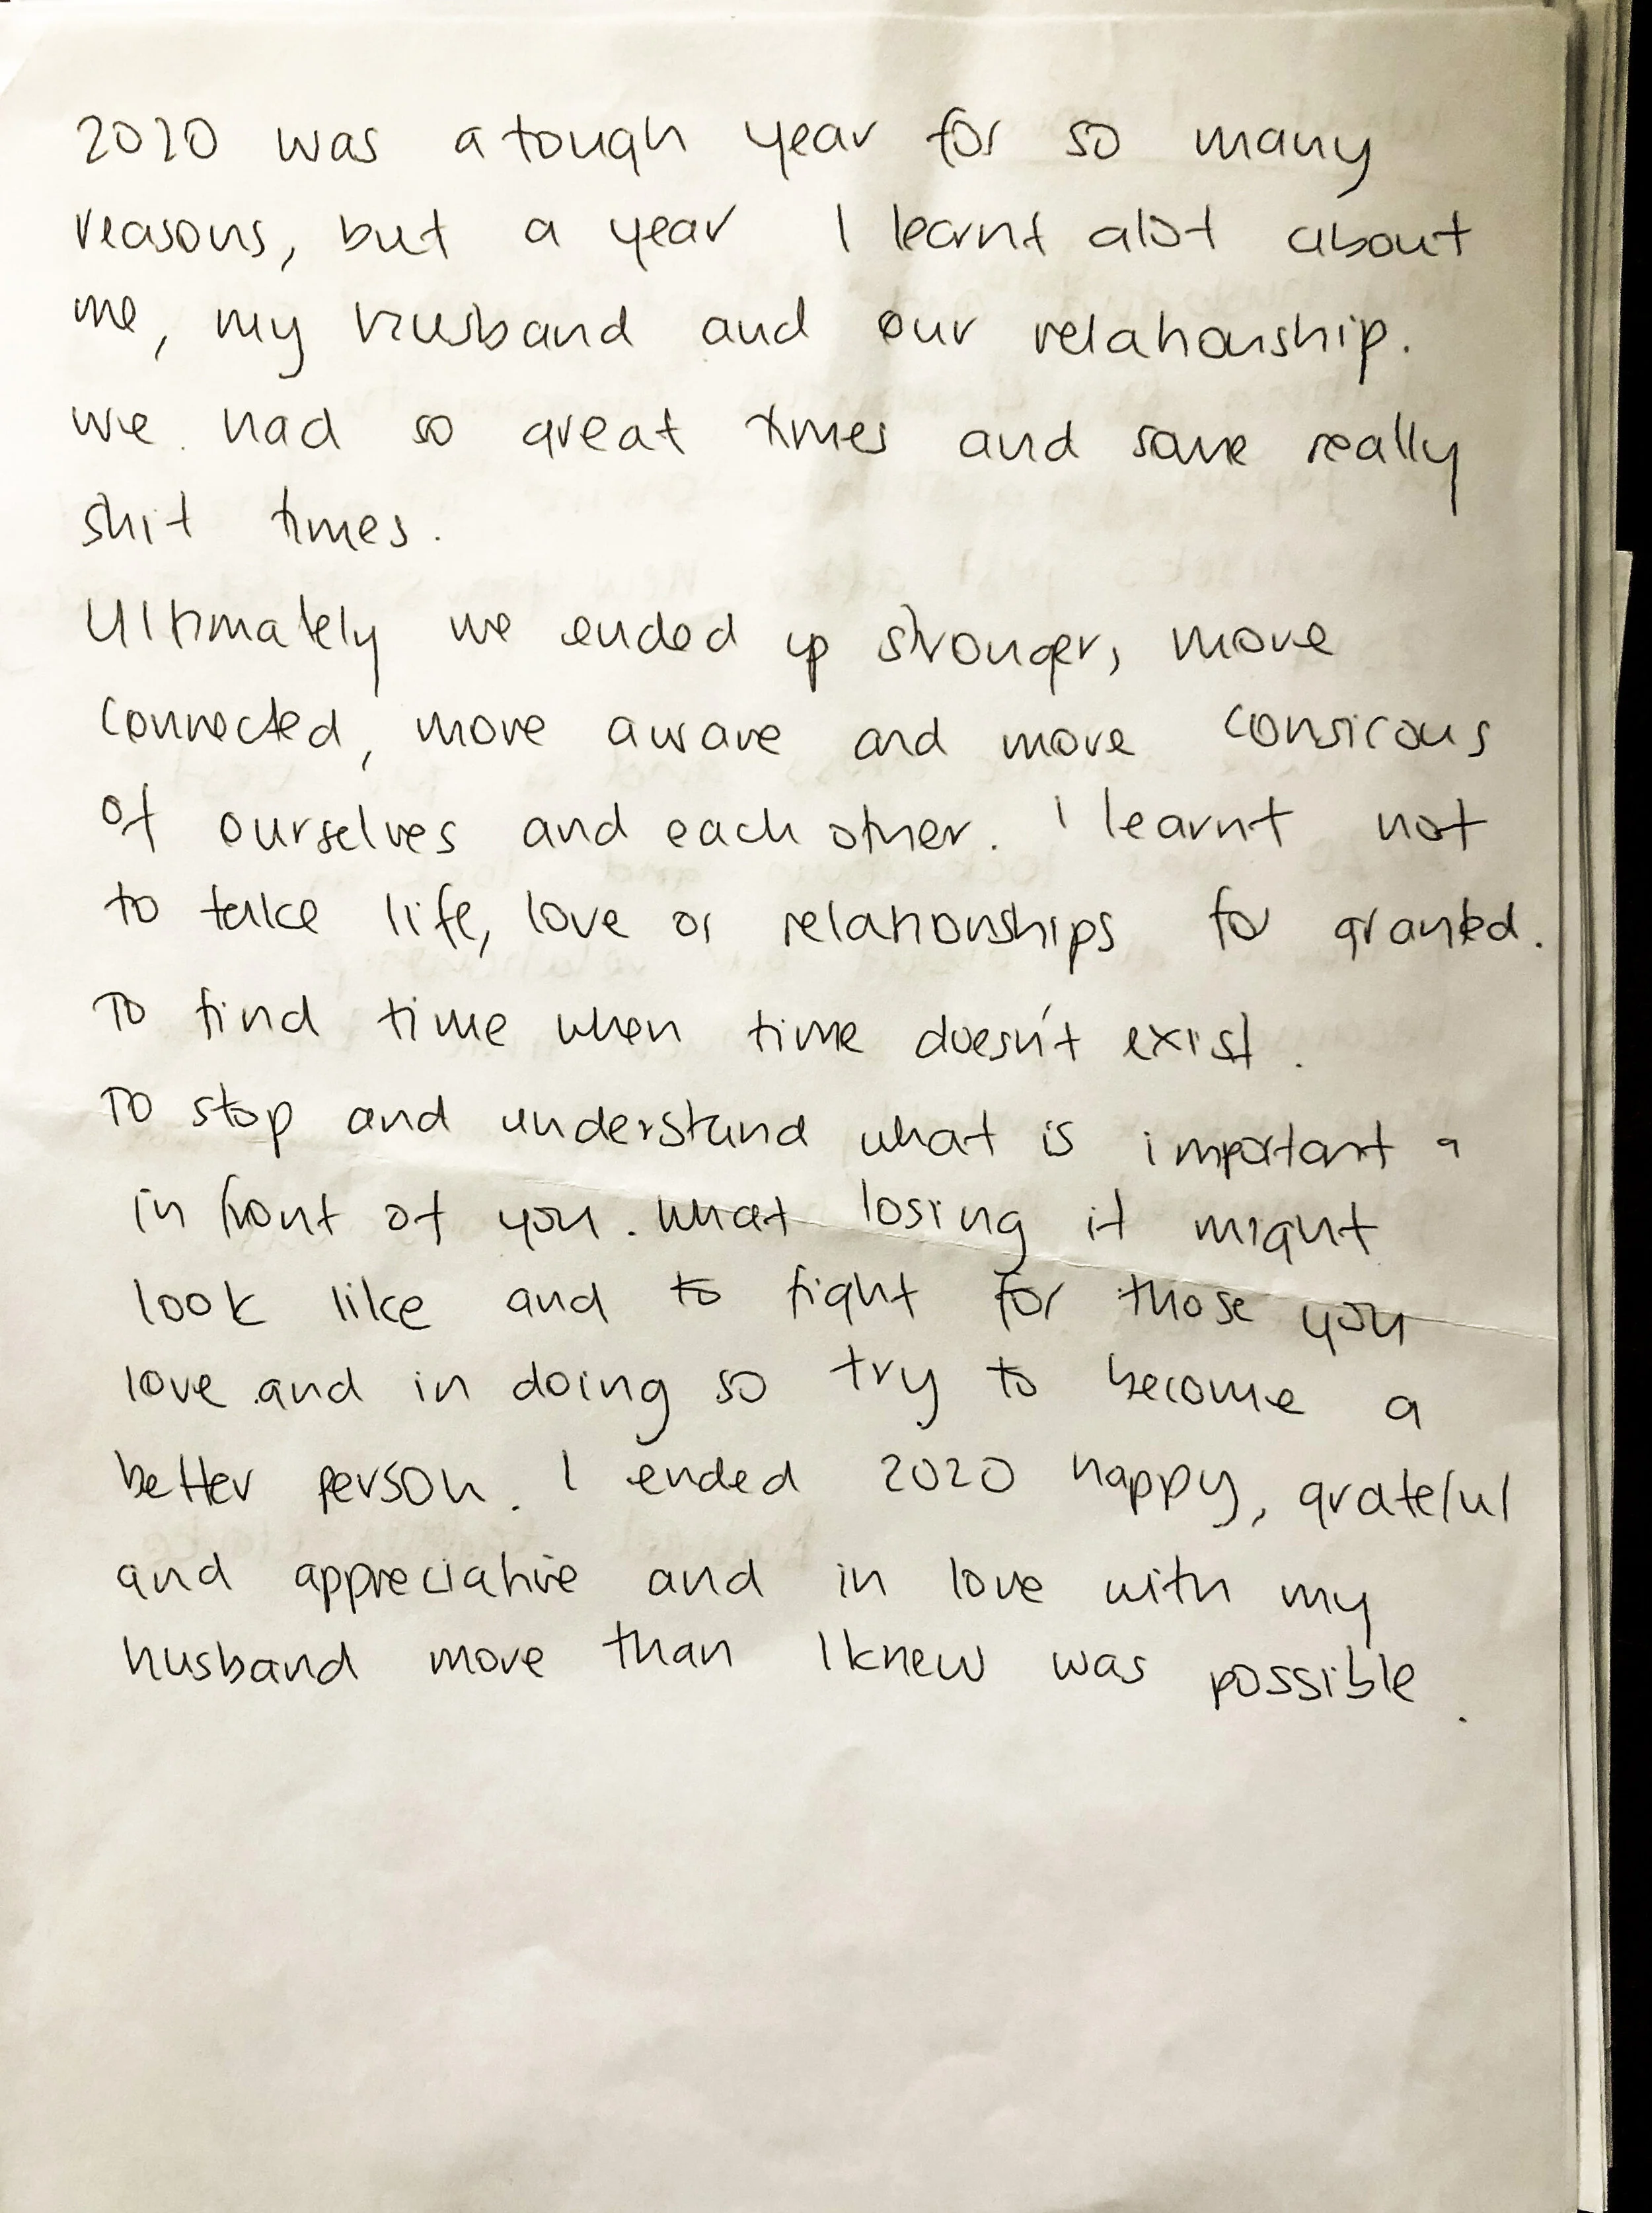 2020 was a tough year for so many
reasons, but a year I learnt alot about
me, my husband and our relationship.
we had so great times and some really
shit times.
Ultimately we ended up stronger, more
connected, more aware and more conscious
of ourselves and each other. I learnt not
to take life, love or relationships for granted.
To find time when time doesn't exist.
To stop and understand what is important a
in front of you. what losing it might
look like and to fight for those you
love and in doing so try to become a
better person. I ended 2020 happy, grateful
and appreciative and in love with my
husband more than I knew was possible.